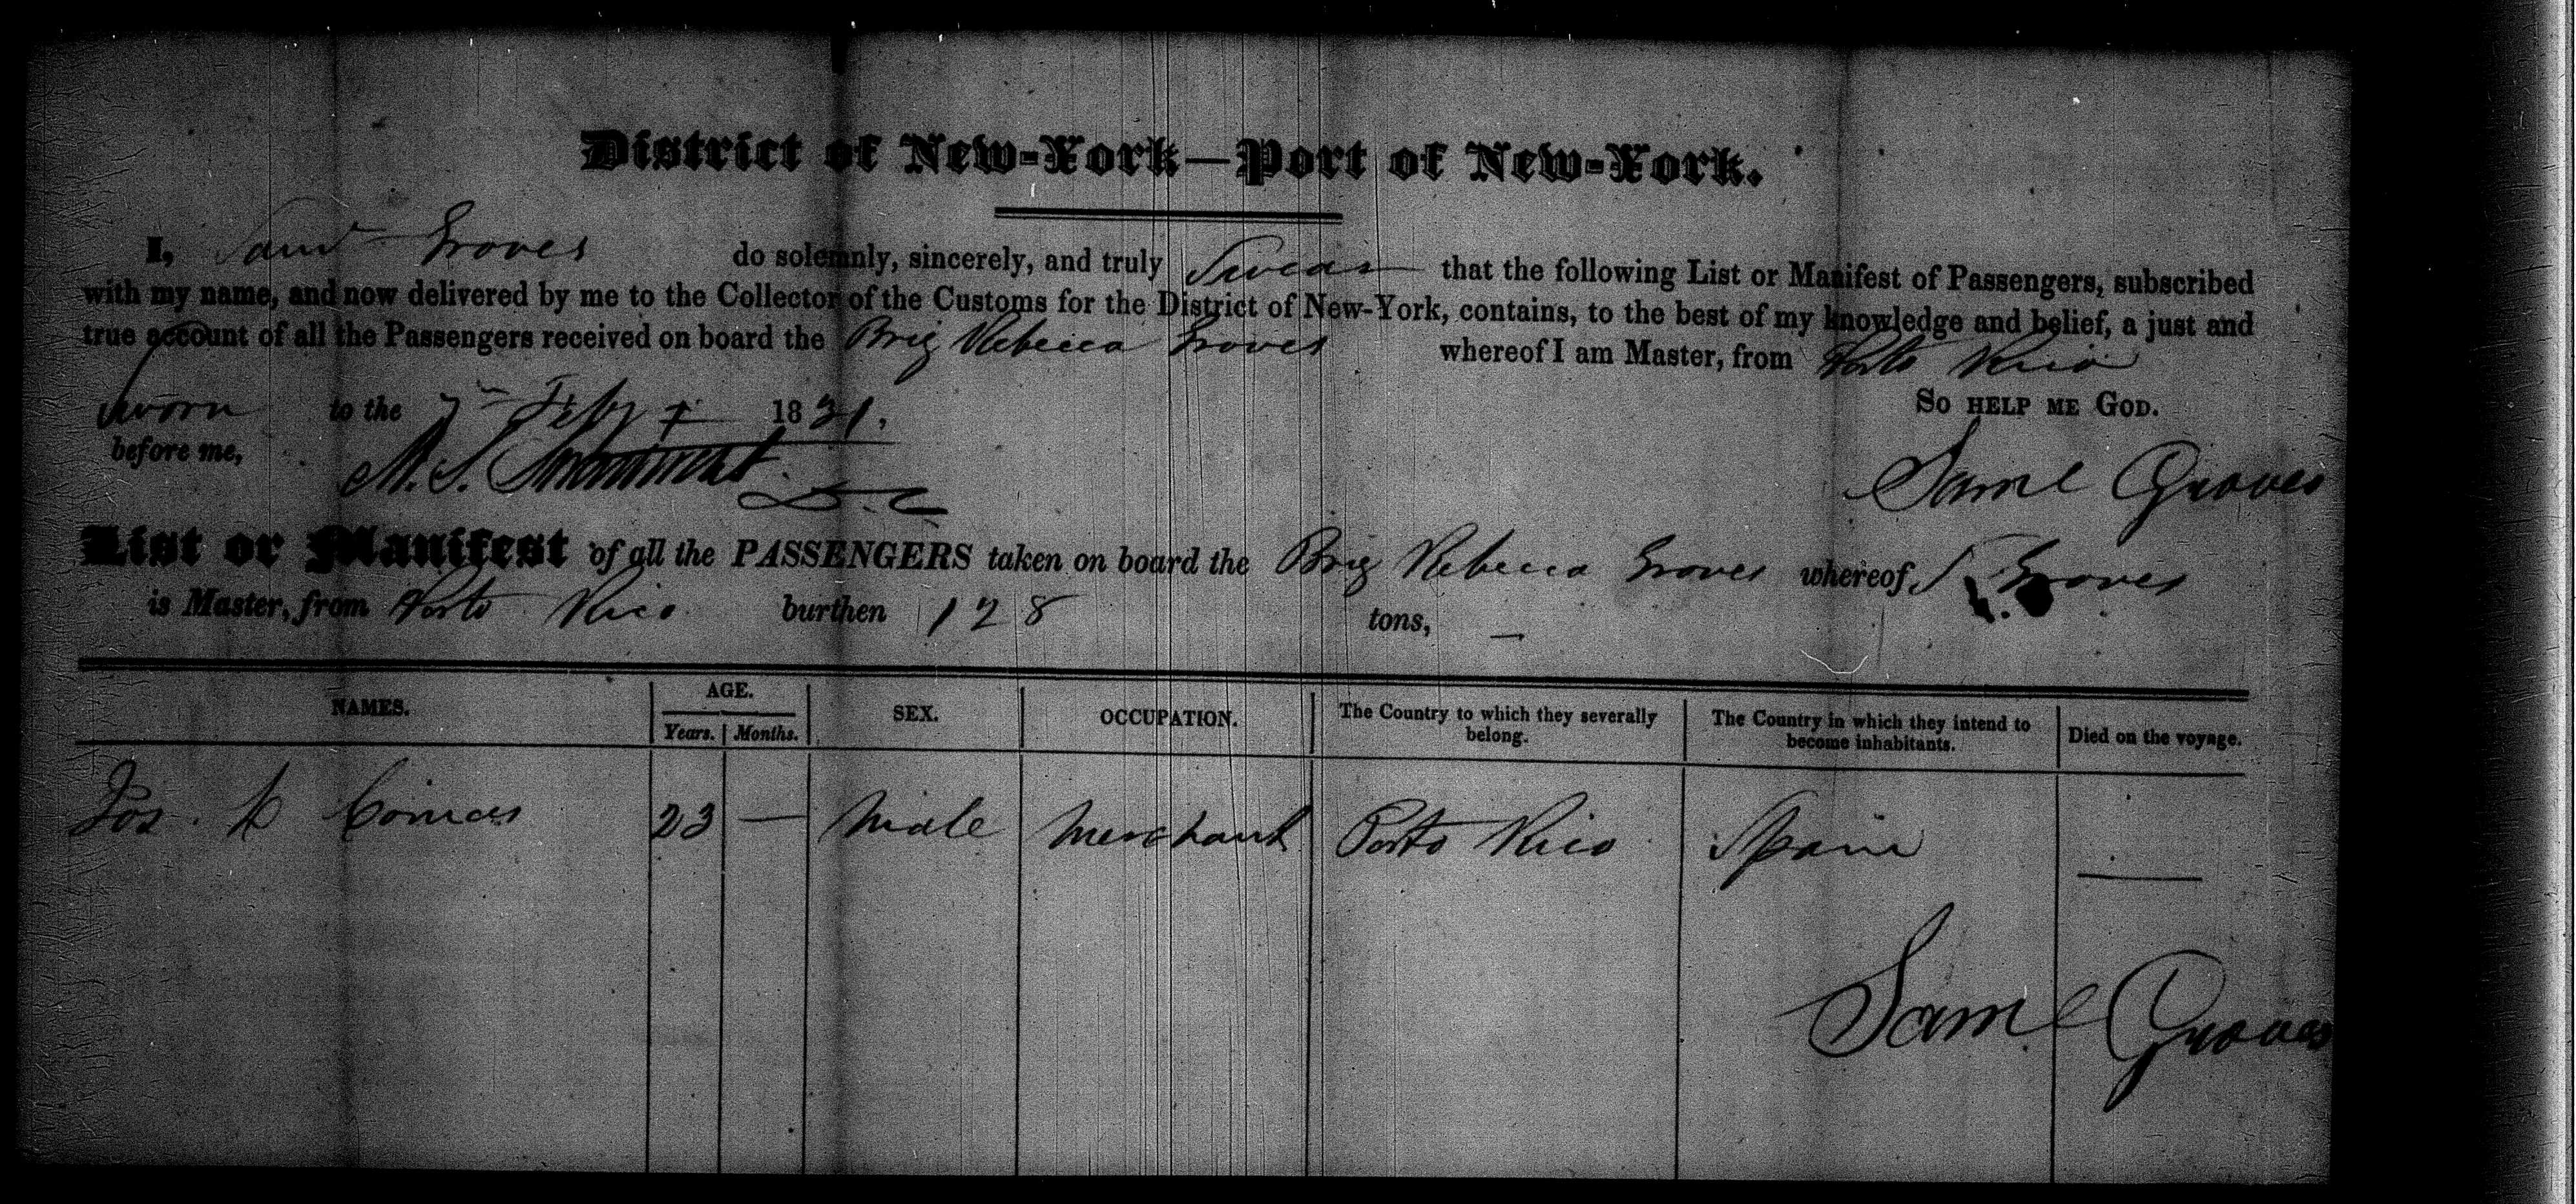 District of New-York—Port of New-York.
I, Saml Groves do solemnly, sincerely, and truly Swear that the following List or Manifest of Passengers, subscribed
with my name, and now delivered by me to the Collector of the Customs for the District of New-York, contains, to the best of my knowledge and belief, a just and
true account of all the Passengers received on board the Brig Rebecca Groves whereof I am Master, from Porto Rico
sworn to the 7th Feby 1831. So HELP ME GOD.
before me, M. S. D.C. Saml Groves
List or Manifest of all the PASSENGERS taken on board the Brig Rebecca Groves whereof S Groves
is Master, from Porto Rico burthen 128 tons, —
NAMES. AGE. Years. Months. SEX. OCCUPATION. The Country to which they severally belong. The Country in which they intend to become inhabitants. Died on the voyage.
Jos. Comas 23 — Male Merchant Porto Rico Spain —
Saml Groves